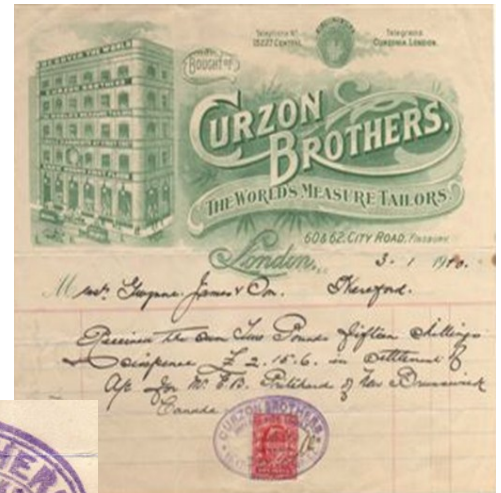 Telephone Nº
Telegrams
CURZONIA LONDON.
BOUGHT OF
CURZON BROTHERS.
THE WORLD'S MEASURE TAILORS.
60 & 62, CITY ROAD, FINSBURY
London,
3 - 1 1910.
Messrs Gwynne James & Son. Hereford.
Received the sum Two Pounds fifteen shillings
& sixpence £ 2. 15. 6. in settlement of
a/c for Mr E.B. Pritchard of New Brunswick
Canada
CURZON BROTHERS